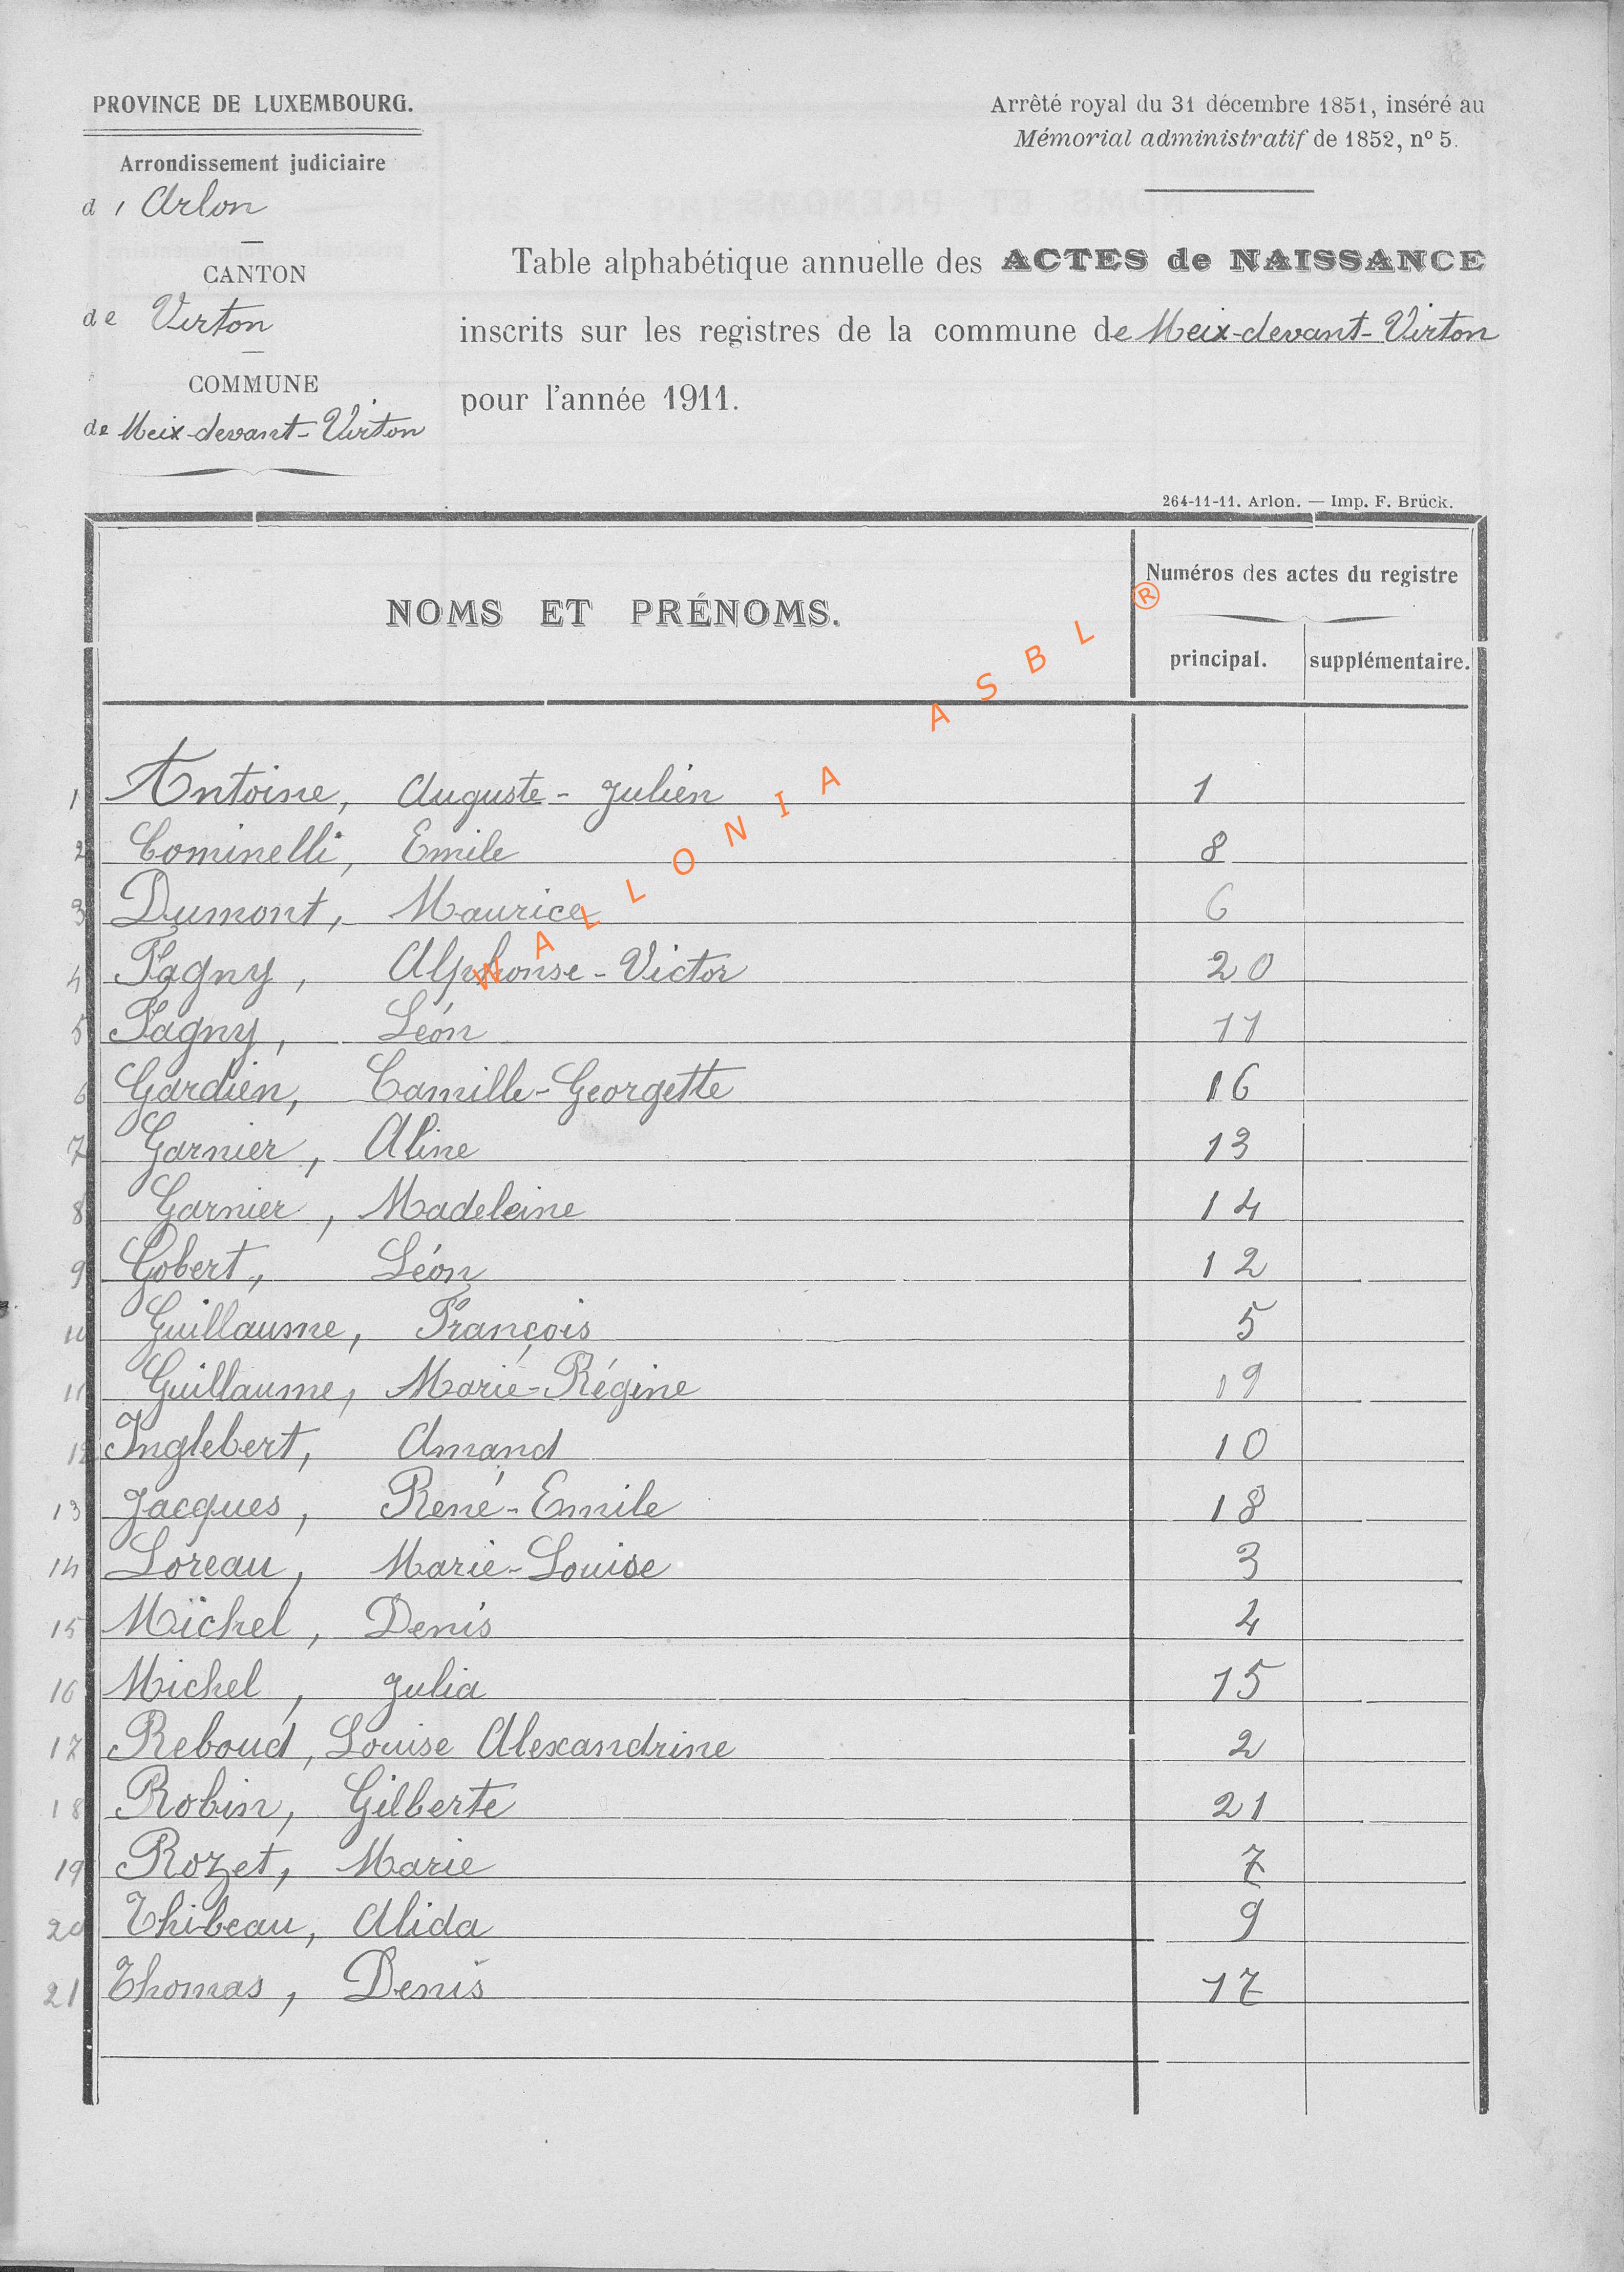 PROVINCE DE LUXEMBOURG.
Arrondissement judiciaire
d'Arlon
CANTON
de Virton
COMMUNE
de Meix-devant-Virton
Arrêté royal du 31 décembre 1851, inséré au
Mémorial administratif de 1852, nº 5.
Table alphabétique annuelle des ACTES de NAISSANCE
inscrits sur les registres de la commune de Meix-devant-Virton
pour l'année 1911.
264-11-11. Arlon. — Imp. F. Brück.
NOMS ET PRÉNOMS.
Numéros des actes du registre
principal. supplémentaire.
WALLONIA ASBL ®
1 Antoine, Auguste-Julien 1
2 Cominelli, Emile 8
3 Dumont, Maurice 6
4 Fagny, Alphonse-Victor 20
5 Fagny, Léon 11
6 Gardien, Camille-Georgette 16
7 Garnier, Aline 13
8 Garnier, Madeleine 14
9 Gobert, Léon 12
10 Guillaume, François 5
11 Guillaume, Marie-Régine 19
12 Inglebert, Amand 10
13 Jacques, René-Emile 18
14 Loreau, Marie-Louise 3
15 Michel, Denis 4
16 Michel, Julia 15
17 Reboud, Louise Alexandrine 2
18 Robin, Gilberte 21
19 Rozet, Marie 7
20 Thibeau, Alida 9
21 Thomas, Denis 17